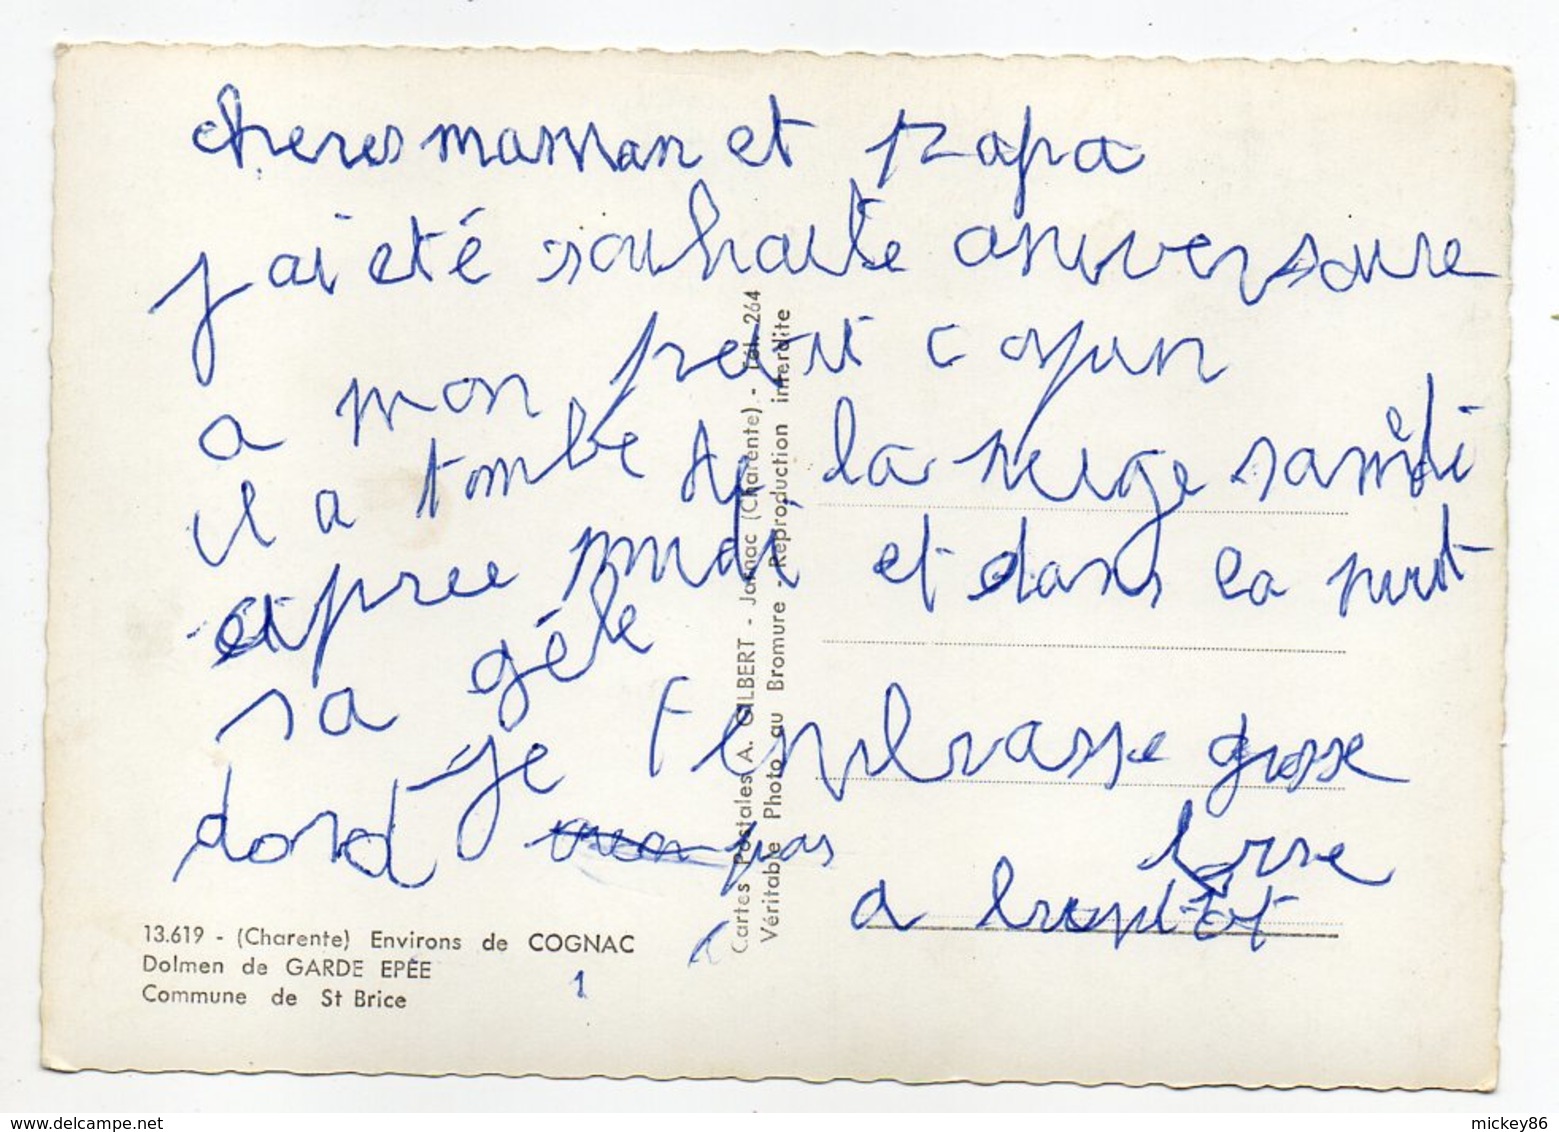 cheres maman et papa
j'ai été souhaite aniversaire
a mon petit copin
il a tombé de la neige samedi
apree midi et dans la nuit
sa géle
je t'embrasse grosse
dord pas
bise
a bientôt
13.619 - (Charente) Environs de COGNAC
Dolmen de GARDE EPÉE
Commune de St Brice
1
Cartes Postales A. GILBERT - Jarnac (Charente) - Tél. 264
Véritable Photo au Bromure - Reproduction interdite
delcampe.net
mickey86